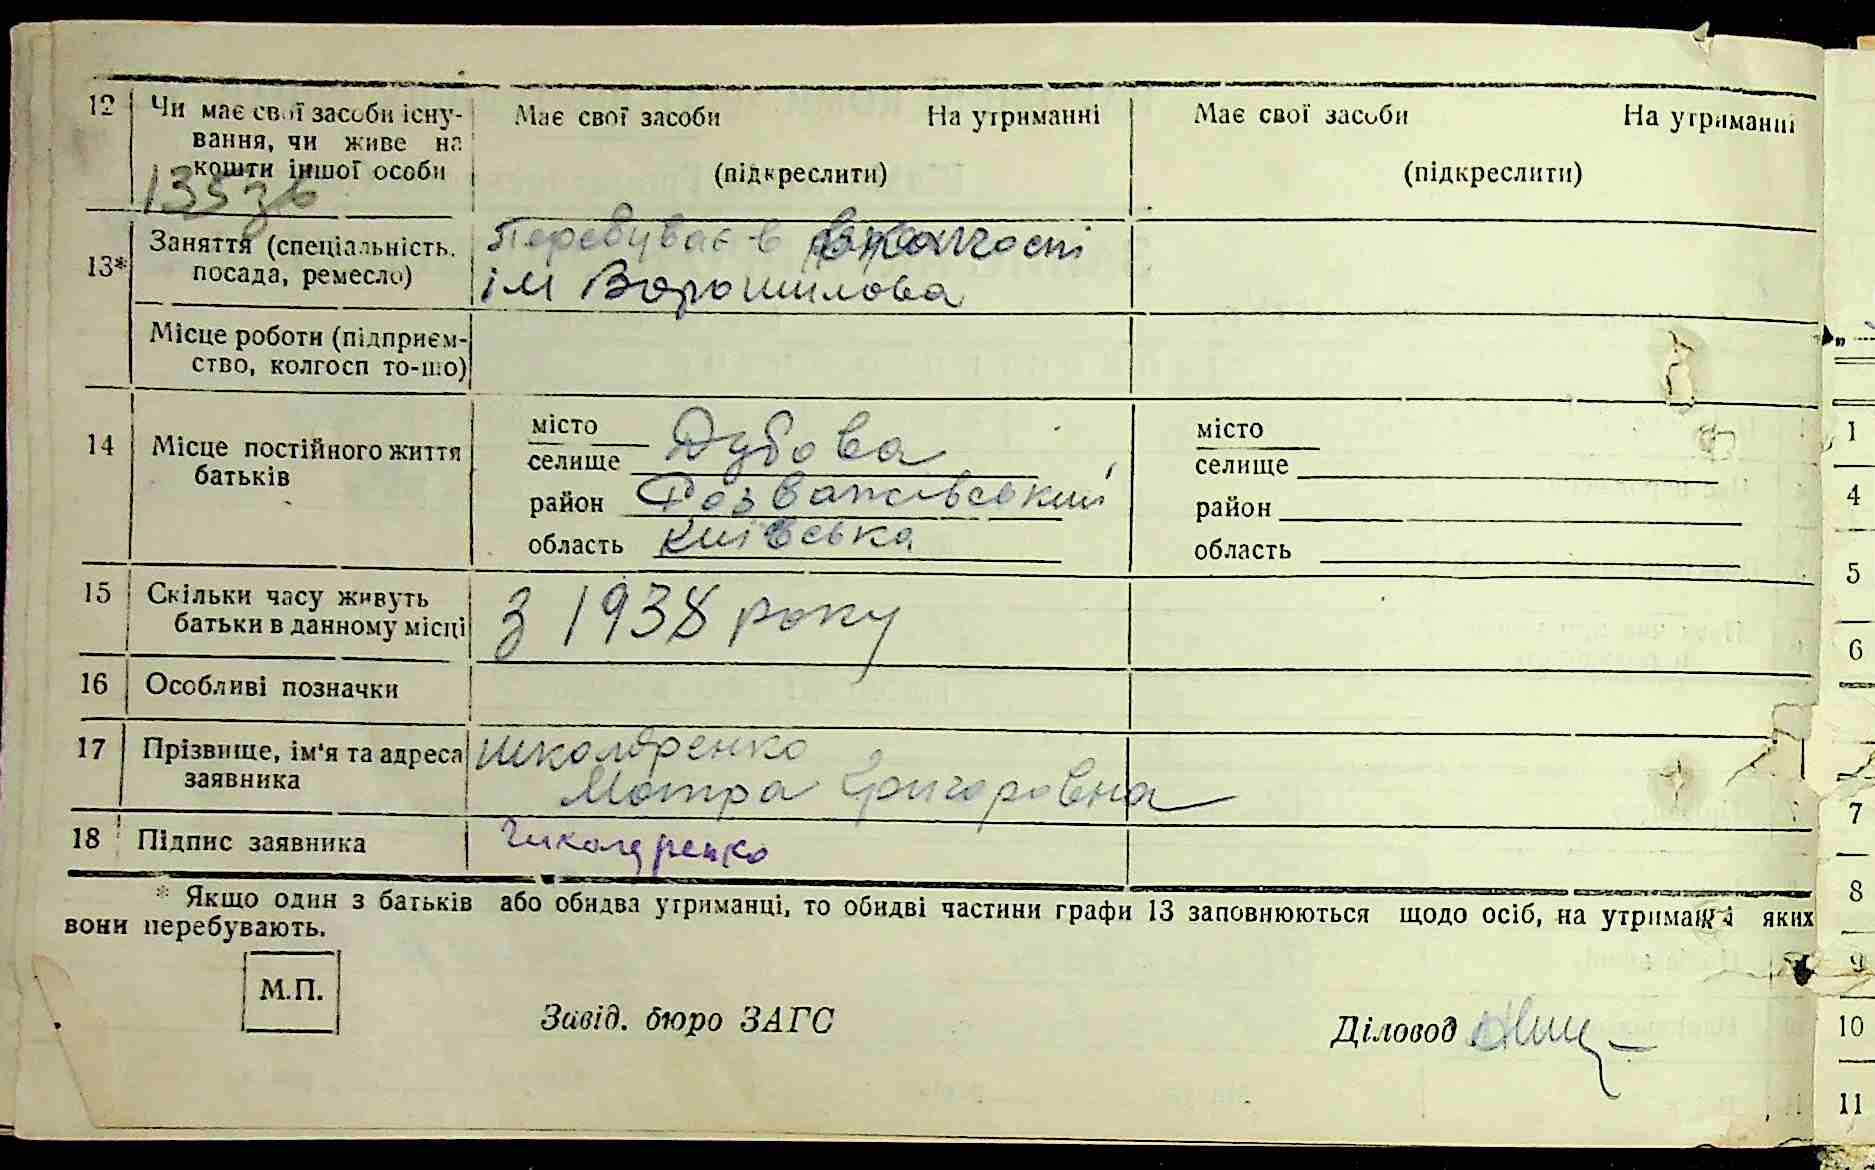 12 Чи має свої засоби існу- Має свої засоби На утриманні Має свої засоби На утриманні
вання, чи живе на
кошти іншої особи (підкреслити) (підкреслити)
135зв
Заняття (спеціальність, Перебуває в колгоспі
13* посада, ремесло) ім Ворошилова
Місце роботи (підприєм-
ство, колгосп то-що)
14 Місце постійного життя місто місто
батьків селище Дубова селище
район Розважівський район
область Київська область
15 Скільки часу живуть з 1938 року
батьки в данному місці
16 Особливі позначки
17 Прізвище, ім'я та адреса Школяренко
заявника Мотра Григоровна
18 Підпис заявника Школяренко
* Якщо один з батьків або обидва утриманці, то обидві частини графи 13 заповнюються щодо осіб, на утриманні яких
вони перебувають.
М.П.
Завід. бюро ЗАГС Діловод
1
4
5
6
7
8
9
10
11